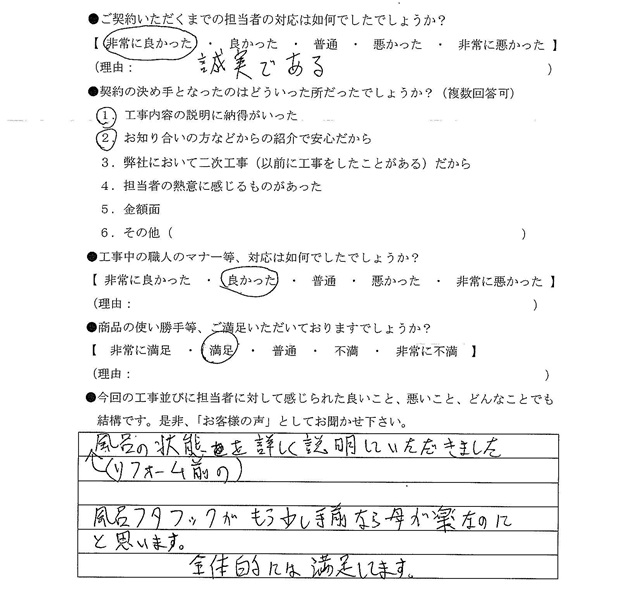 ●ご契約いただくまでの担当者の対応は如何でしたでしょうか？
【 非常に良かった ・ 良かった ・ 普通 ・ 悪かった ・ 非常に悪かった 】
（理由： 誠実である ）
●契約の決め手となったのはどういった所だったでしょうか？（複数回答可）
１．工事内容の説明に納得がいった
２．お知り合いの方などからの紹介で安心だから
３．弊社において二次工事（以前に工事をしたことがある）だから
４．担当者の熱意に感じるものがあった
５．金額面
６．その他（ ）
●工事中の職人のマナー等、対応は如何でしたでしょうか？
【 非常に良かった ・ 良かった ・ 普通 ・ 悪かった ・ 非常に悪かった 】
（理由： ）
●商品の使い勝手等、ご満足いただいておりますでしょうか？
【 非常に満足 ・ 満足 ・ 普通 ・ 不満 ・ 非常に不満 】
（理由： ）
●今回の工事並びに担当者に対して感じられた良いこと、悪いこと、どんなことでも
結構です。是非、「お客様の声」としてお聞かせ下さい。
風呂の状態を詳しく説明していただきました
（リフォーム前の）
風呂フタフックがもう少し手前なら母が楽なのに
と思います。
全体的には満足してます。